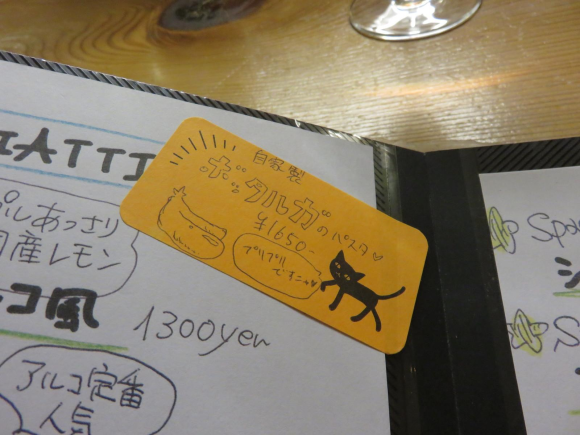 IATTI
自家製
ボッタルガ
のパスタ♡
¥1650-
プリプリ
ですニャ♥
プルあっさり
国産レモン
コ風
1300yen
アルコ定番
人気
Spa
S